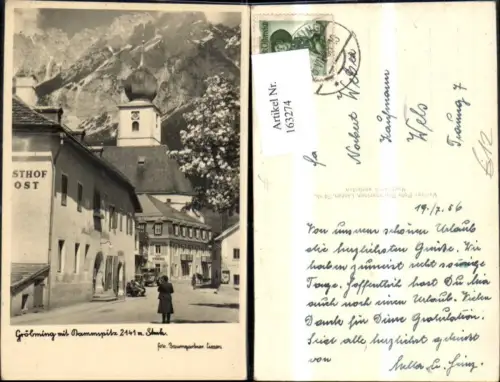 STHOF
POST
Gröbming mit Kammspitz 2141 m, Stmk.
fot. Baumgartner Liezen
Artikel Nr.
163274
Fa
Norbert
Kaufmann
Wels
Traung 7
19./7. 56
Von unserem schönen Urlaub
die herzlichsten Grüße. Wir
haben zumeist recht sonnige
Tage. Hoffentlich hast Du bis
auch noch einen Urlaub. Vielen
Dank für Deine Gratulation.
Seid alle herzlichst gegrüßt
von